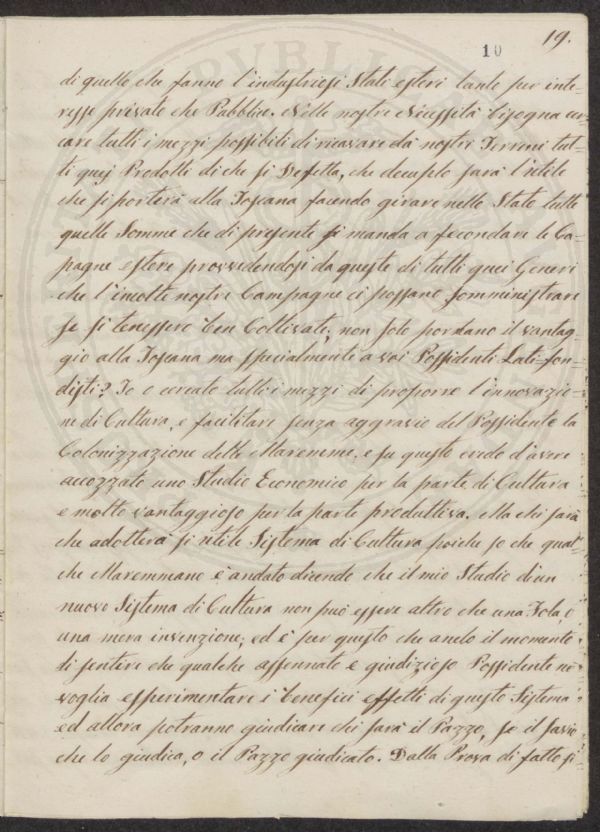 19.
10
di quello che fanno l'industriosi Stati esteri tanto per inte-
resse privato che Pubblico. Nelle nostre Necessità bisogna cer-
care tutti i mezzi possibili di ricavare da nostri Terreni tut-
ti quej Prodotti di che si Difetta, che decuplo sarà l'utile
che si porterà alla Toscana facendo girare nello Stato tutte
quelle Somme che di presente si manda a fecondare le Ca-
pagne estere provvedendosi da queste di tutti quei Generi
che l'incolte nostre Campagne ci possano somministrare
se si tenessero ben Coltivate; non solo portano il vantag-
gio alla Toscana ma specialmente a voi Possidenti Lati-fon-
disti? Io o cercato tutti i mezzi di proporre l'innovazio-
ni di Cultura, e facilitare senza aggravio del Possidente la
Colonizzazione delle Maremme, e su questo credo d'avere
accozzato uno Studio Economico per la parte di Cultura
e molto vantaggioso per la parte produttiva. Ma chi sarà
che adotterà sì utile Sistema di Cultura poiche so che qual-
che Maremmano è andato dicendo che il mio Studio di un
nuovo Sistema di Cultura non può essere altro che una Fola, o
una mera invenzione; ed è per questo che anelo il momento
di sentire che qualche assennato e giudizioso Possidente ne
voglia esperimentare i benefici effetti di questo Sistema
ed allora potranno giudicare chi sarà il Pazzo, se il Savio
che lo giudica, o il Pazzo giudicato. Dalla Prova di fatto si-